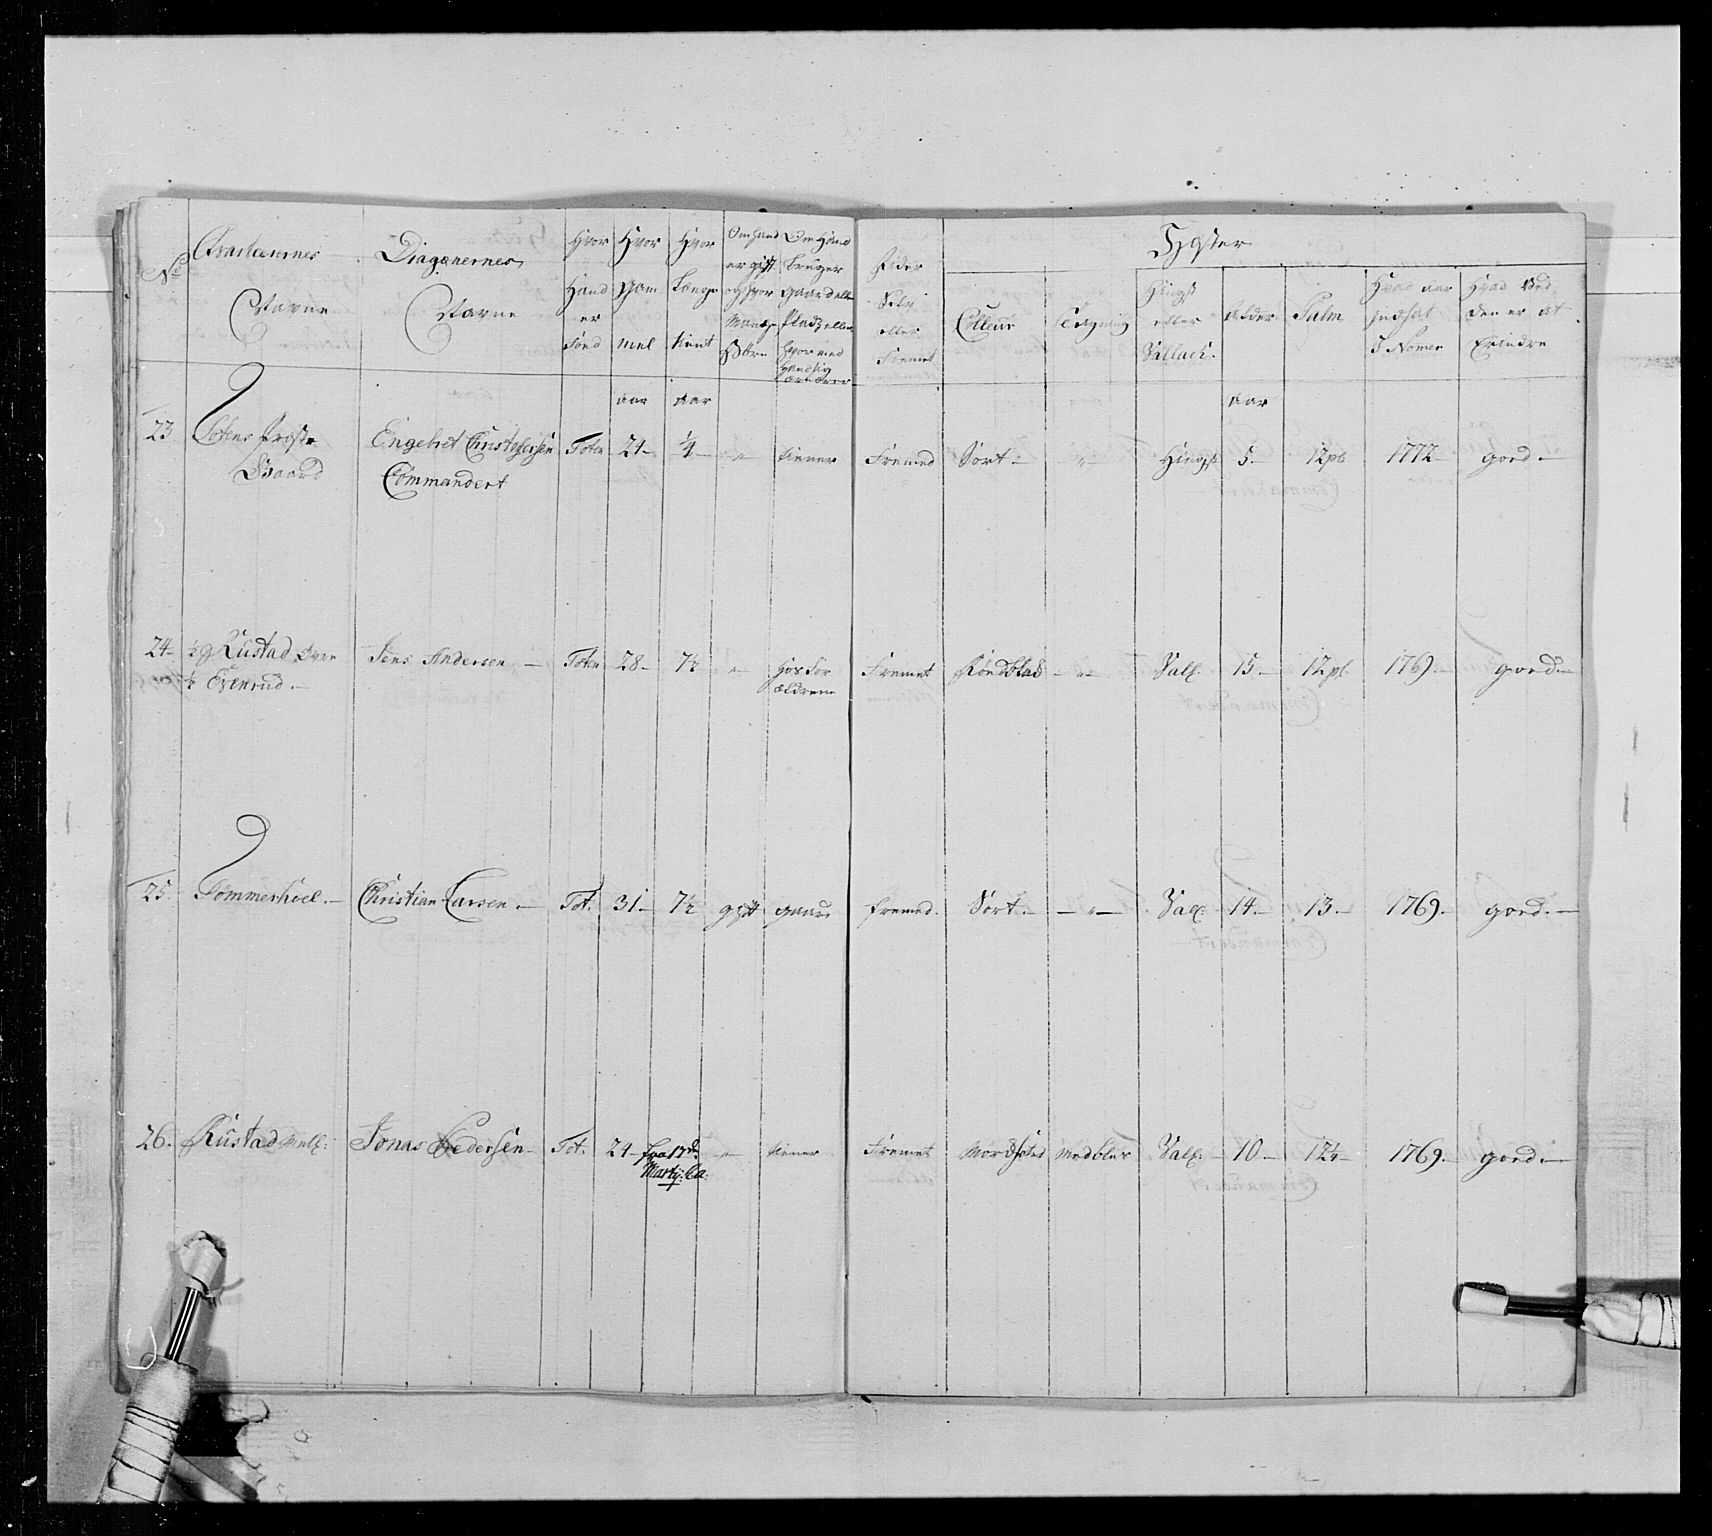 No
Qvarterernes
Navne
Dragonernes
Navne
Hvor
Hand
er
Föed
Hvor
gam
mel
Hvor
Længe
tient
Om hand
er gift
og hvor
Mange
Börn
Om Hand
bruger
gaard eller
Pladz eller
hvormed
hand sig
ernærer
Rider
Selv
eller
Fremet
Hæster
Colleur
Tegning
Hingst
eller
Vallack
Alder
Palm
Hvad aar
indsat
I Nomer
Hvad Ved
den er at
Erindre
aar
aar
aar
23 Totens Præste
Gaard
Engebret Christophersen
Commandert
Toten 21- 1/4 - " tiener
Fremed Sort - " Hingst 5. 12 pl 1772 goed -
24- 1/2 Rustad övre
1/2 Evenrud. -
Jens Andersen - Toten 28- 7 1/2 - hos For
ældrene
Fremet Röedblad - " - Vall. 15- 12 pl. 1769. - goed -
25 Sommerhoel. - Christian Larsen. - Tot. 31- 7 1/2 gift gaard
fremed. Sort. - - " - Vall. 14. - 13. - 1769. - goed. -
26. Rustad mell: Jonas Pedersen - Tot. 24- fra 13de
Martij: Ca:
" tiener
Fremet Medbles Vall. 10 - 12 1/2 1769. - goed. -